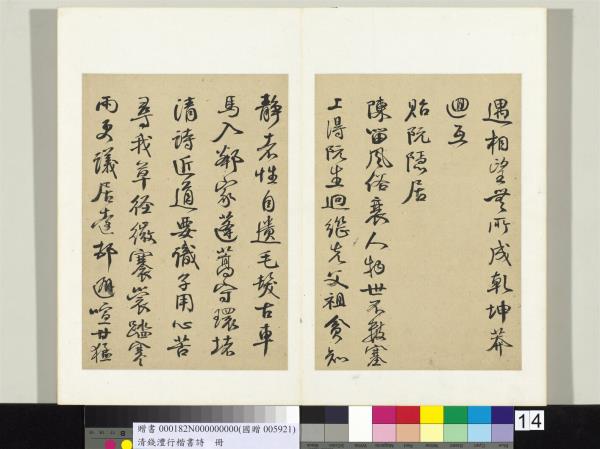 遇相望無所成乾坤莽
迴互
貽阮隱居
陳留風俗衰人物世不數塞
上得阮生迥繼先父祖貧知
靜者性自遺毛髮古車
馬入鄰家蓬蒿守環堵
清詩近道要識子用心苦
尋我草徑微褰裳踏寒
雨更議居遠邨避喧甘猛
贈書 000182N000000000(國贈 005921)
清錢灃行楷書詩　冊
14